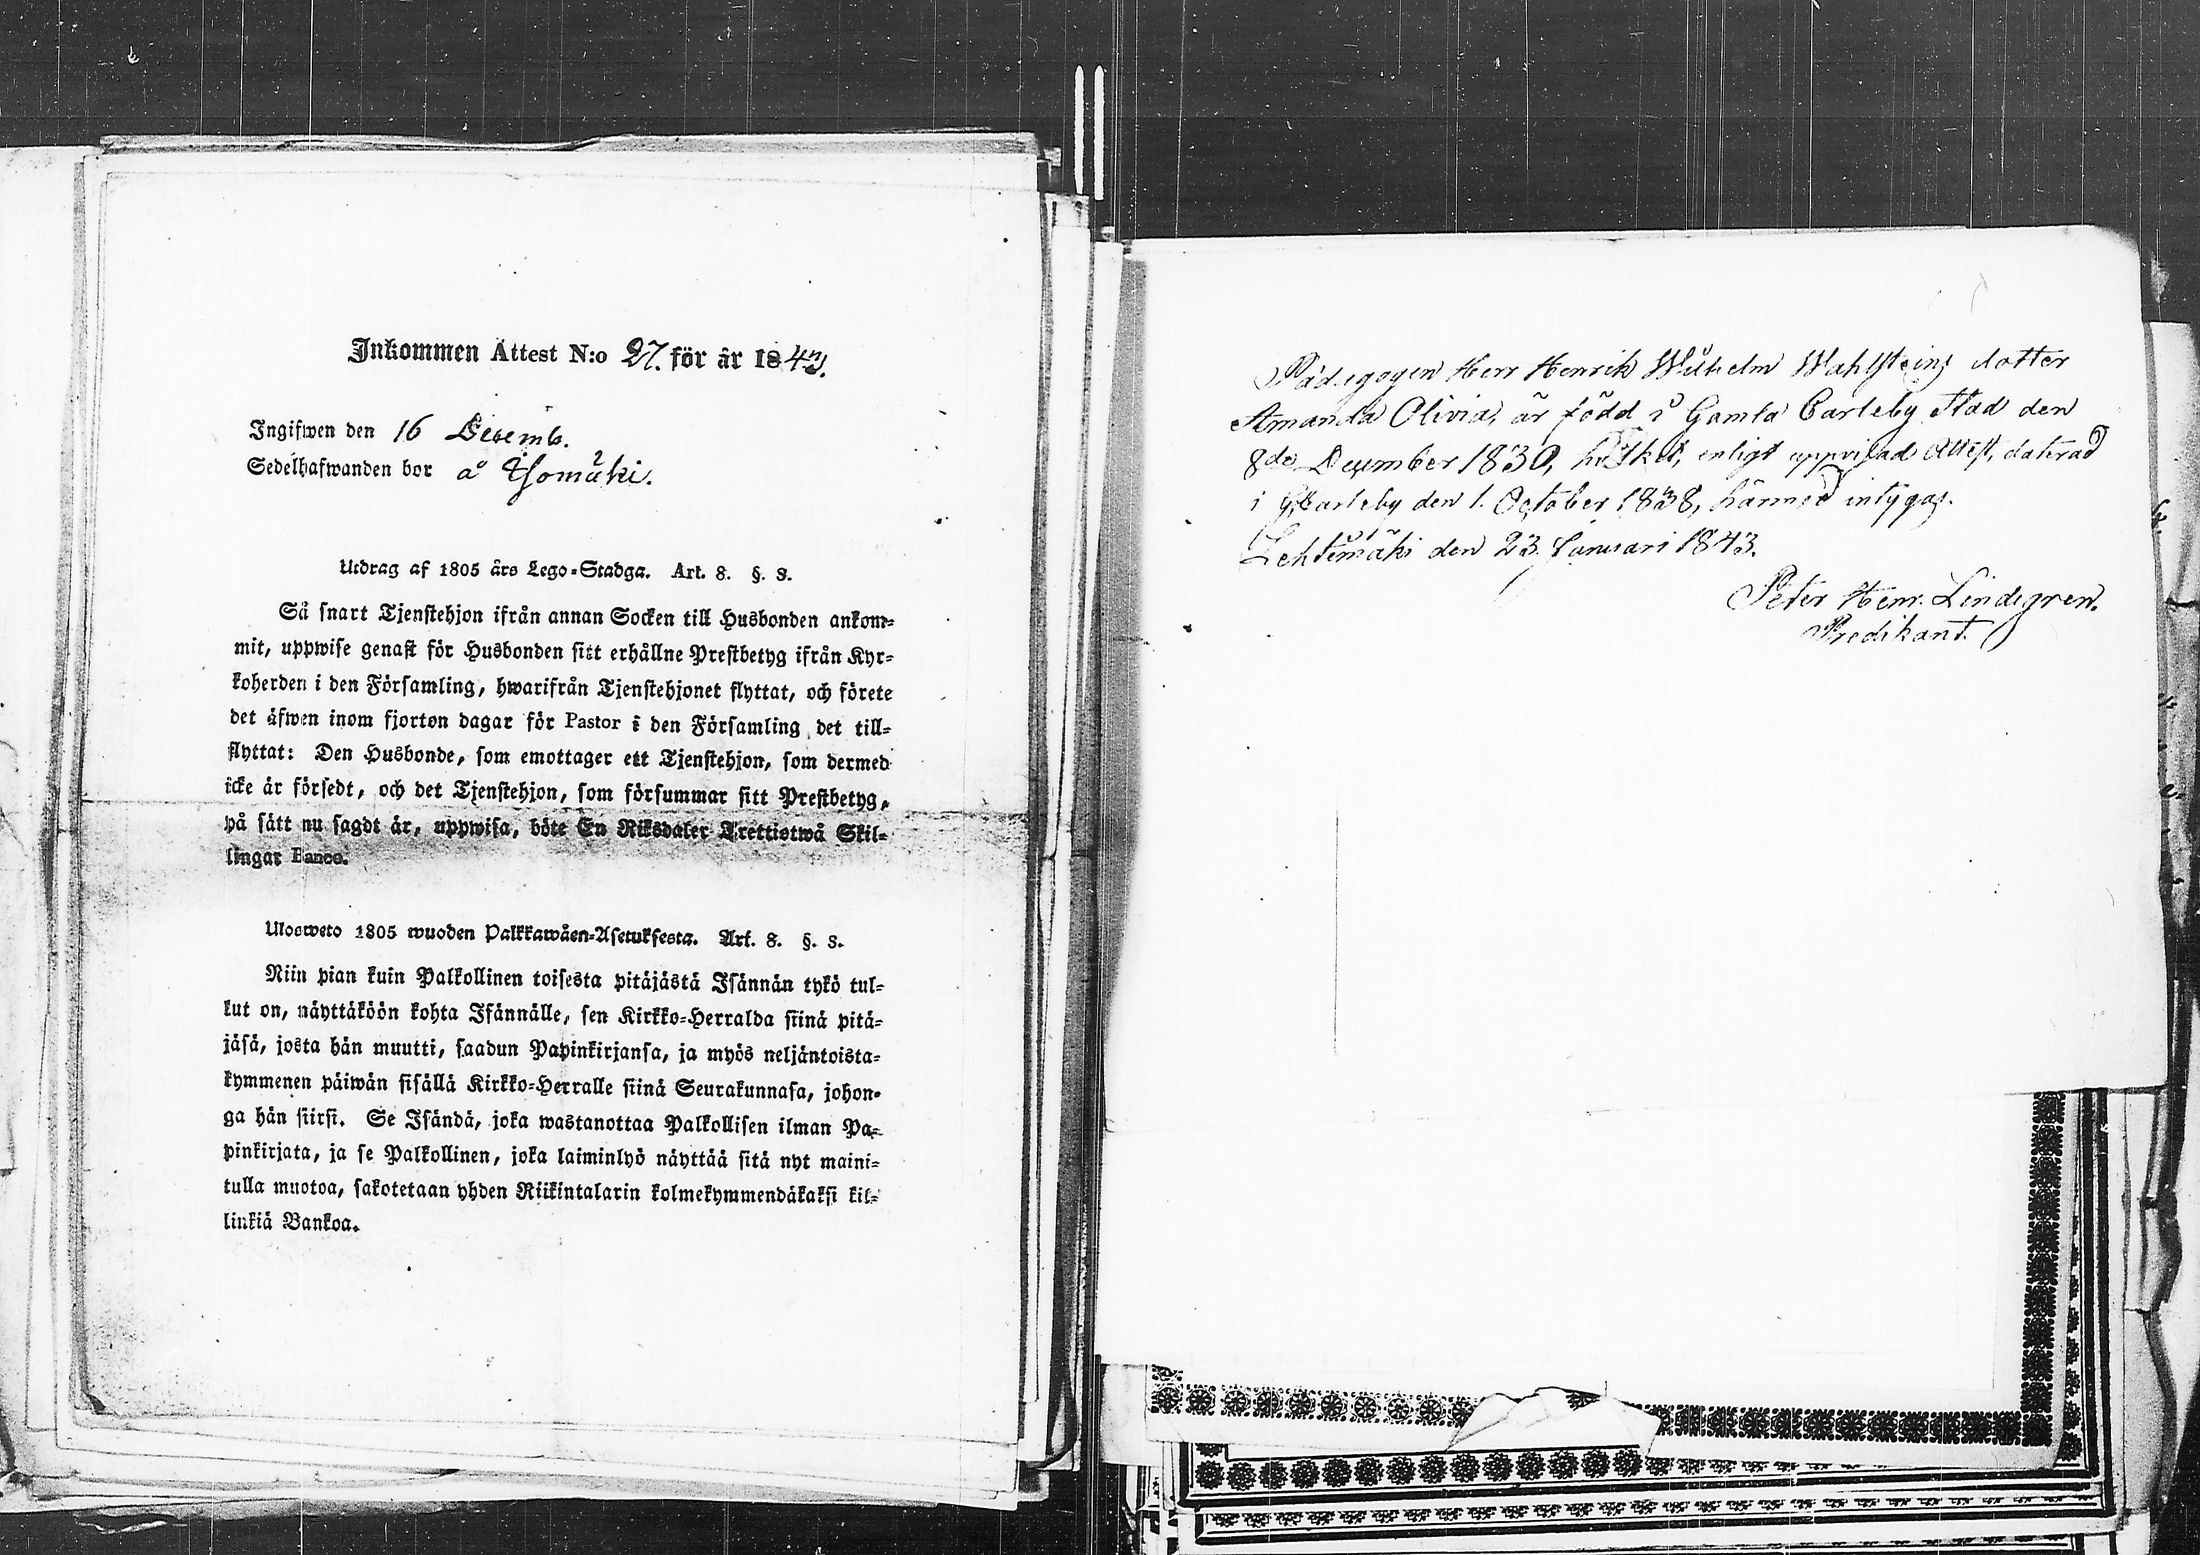 Inkommen Attest N:o 27. för år 1843.
Ingifwen den 16 Decemb.
Sedelhafwanden bor å Isomäki.
Utdrag af 1805 års Lego-Stadga. Art. 8. §. 3.
Så snart Tjenstehjon ifrån annan Socken till Husbonden ankom-
mit, uppwise genast för Husbonden sitt erhållne Prestbetyg ifrån Kyr-
koherden i den Församling, hwarifrån Tjenstehjonet flyttat, och förete
det äfwen inom fjorton dagar för Pastor i den Församling det till-
flyttat: Den Husbonde, som emottager ett Tjenstehjon, som dermed
icke är försedt, och det Tjenstehjon, som försummar sitt Prestbetyg,
på sätt nu sagdt är, uppwisa, böte En Riksdaler Trettiotwå Skil-
lingar Banco.
Ulosweto 1805 wuoden Palkkawäen-Asetuksesta. Art. 8. §. 3.
Niin pian kuin Palkollinen toisesta pitäjästä Isännän tykö tul-
kut on, näyttäköön kohta Isännälle, sen Kirkko-Herralda siinä pitä-
jäsä, josta hän muutti, saadun Papinkirjansa, ja myös neljäntoista-
kymmenen päiwän sisällä Kirkko-Herralle siinä Seurakunnasa, johon-
ga hän siirsi. Se Isändä, joka wastanottaa Palkollisen ilman Pa-
pinkirjata, ja se Palkollinen, joka laiminlyö näyttää sitä nyt maini-
tulla muotoa, sakotetaan yhden Riikintalarin kolmekymmendäkaksi kil-
linkiä Bankoa.
Pädagogen Herr Henrik Wilhelm Wahlsteins dotter
Amanda Olivia, är född i Gamla Carleby Stad den
8de December 1830, hvilket, enligt uppvisad Attest, daterad
i G. Carleby den 1. October 1838, härmed intygas.
Lehtimäki den 23. Januari 1843.
Peter Henr. Lindegren.
Predikant.